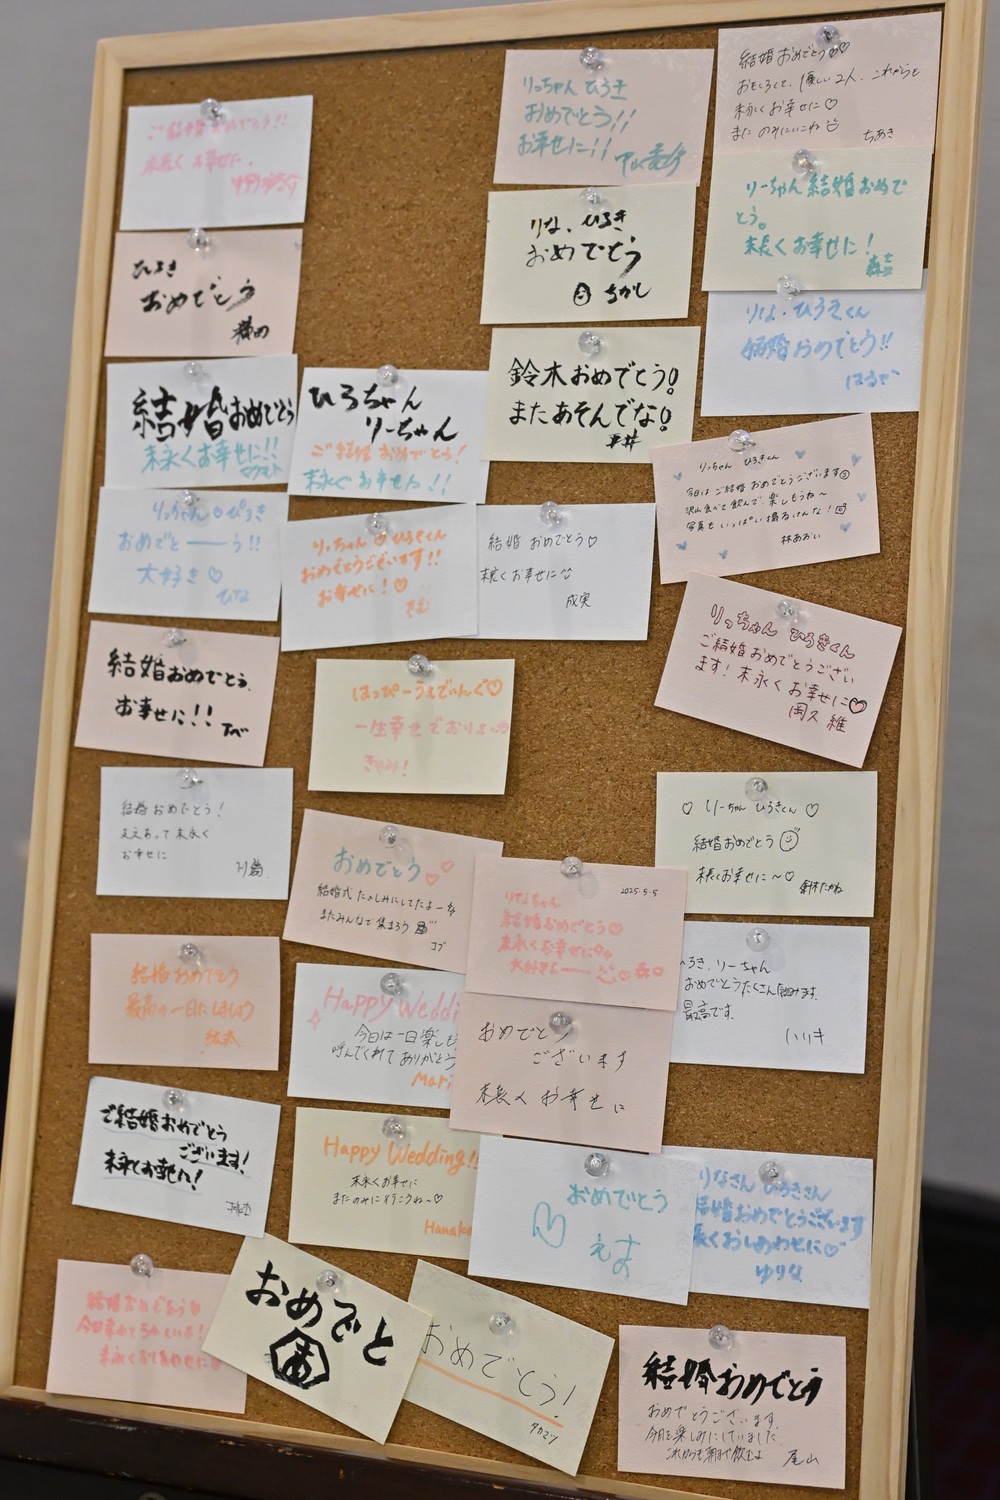 ご結婚おめでとう!!
末永くお幸せに.
ひろき
おめでとう
横田
結婚おめでとう
末永くお幸せに!!
りっちゃん♡ぴろき
おめでとーーう!!
大好き♡
ひな
結婚おめでとう.
お幸せに!!
アベ
結婚おめでとう!
支えあって末永く
お幸せに
川島
結婚おめでとう
最高の一日にしましょう
ご結婚おめでとう
ございます!
末永くお幸せに!
結婚おめでとう♡
末永くお幸せに
ひろちゃん
りーちゃん
ご結婚おめでとう!
末永くお幸せに!!
りっちゃん♡ひろきくん
おめでとうございます!!
お幸せに!♡
さむ
結婚おめでとう♡
末永くお幸せに
成実
はっぴーうぇでぃんぐ♡
一生幸せでおりよ
きゃみ!
おめでとう♡♡
結婚式たのしみにしてたよー
またみんなで集まろう
コブ
Happy Weddi
今日は一日楽しも
呼んでくれてありがとう
Mari
Happy Wedding!!
末永くお幸せに
またのみに行こうね〜♡
Hanako
おめでと
おめでとう!
タカマツ
りっちゃん ひろき
おめでとう!!
お幸せに!!
りな、ひろき
おめでとう
ちかし
鈴木おめでとう!
またあそんでな!
平井
2025.5.5
りなちゃん
結婚おめでとう♡
末永くお幸せに
大好きよーー
おめでとう
ございます
末長くお幸せに
おめでとう
えお
結婚おめでとう♡♡
おもしろくて、優しい2人、これからも
末永くお幸せに♡
またのみにいこね
ちあき
りーちゃん結婚おめで
とう。
末長くお幸せに!
りな・ひろきくん
結婚おめでとう!!
はるか
りっちゃん ひろきくん
今日はご結婚おめでとうございます
沢山食べて飲んで、楽しもうね〜
写真もいっぱい撮るけんな!
林あおい
りっちゃん ひろきくん
ご結婚おめでとうござい
ます!末永くお幸せに♡
岡久 維
♡ りーちゃん ひろきくん ♡
結婚おめでとう
末長くお幸せに〜♡
鈴木たかね
ひろき、りーちゃん
おめでとうたくさん飲みます.
最高です.
ハルキ
りなさん ひろきさん
結婚おめでとうございます
長くおしあわせに♡
ゆりな
結婚おめでとう
おめでとうございます.
今日を楽しみにしていました.
これからも朝まで飲むよ
尾山